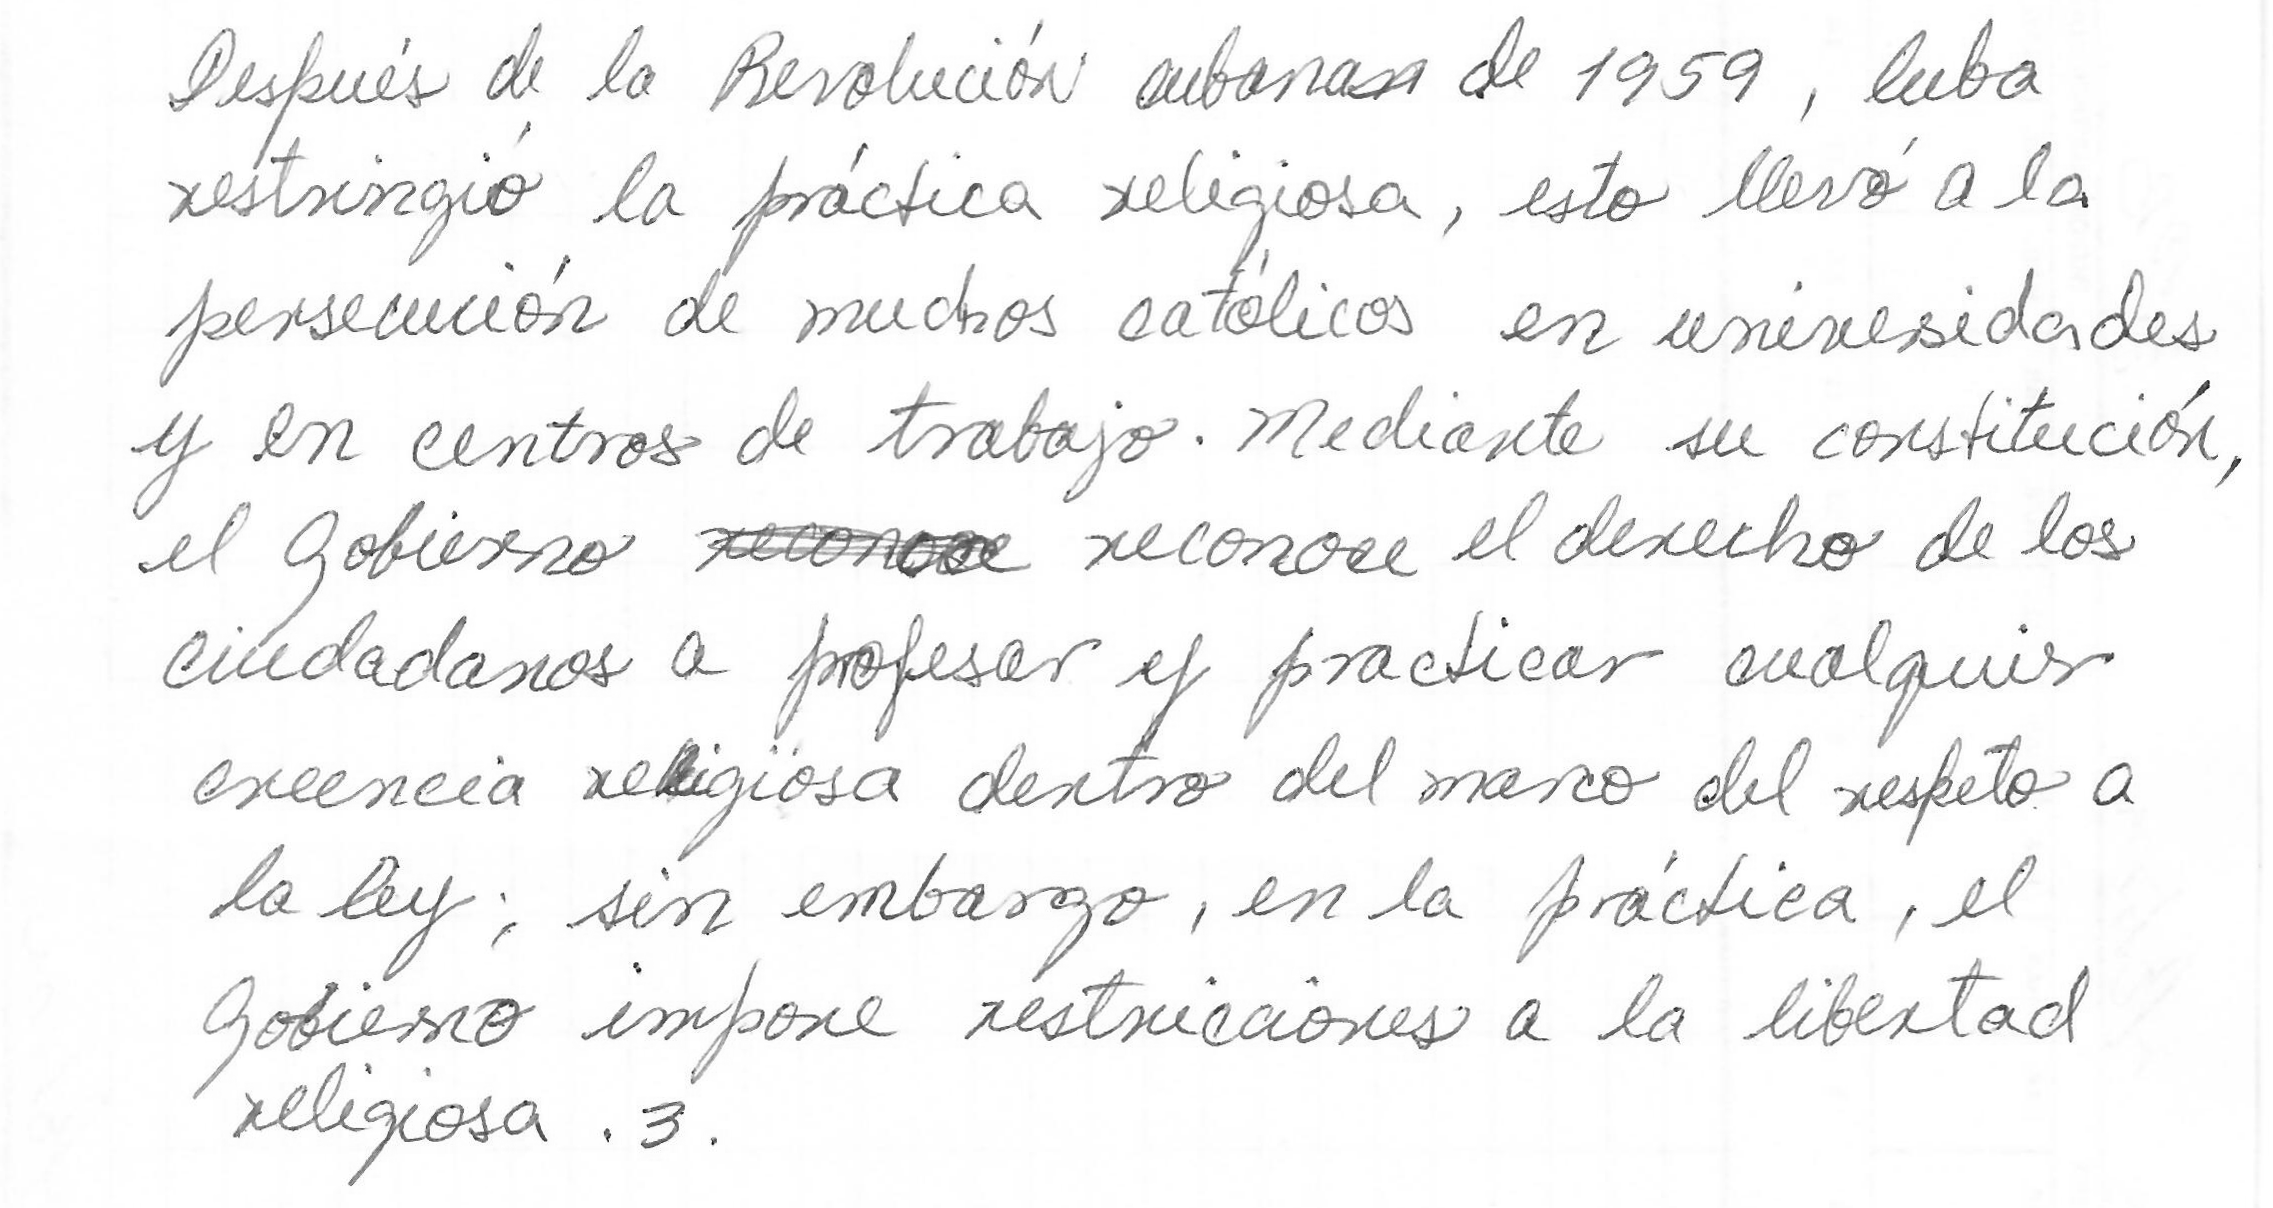 Después de la Revolución cubana de 1959, Cuba
restringió la práctica religiosa, esto llevó a la
persecución de muchos católicos en universidades
y en centros de trabajo. Mediante su constitución,
el Gobierno reconoce reconoce el derecho de los
ciudadanos a profesar y practicar cualquier
creencia religiosa dentro del marco del respeto a
la ley; sin embargo, en la práctica, el
Gobierno impone restricciones a la libertad
religiosa .3.